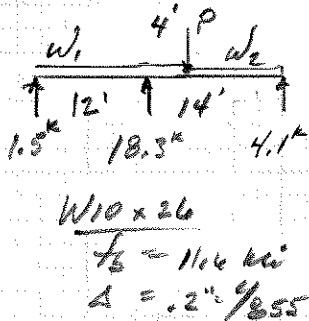 4' P
w₁ w₂
12' 14'
1.5ᵏ 18.3ᵏ 4.1ᵏ
W10 x 26
f_b = 11.6 ksi
Δ = .2" = L/855